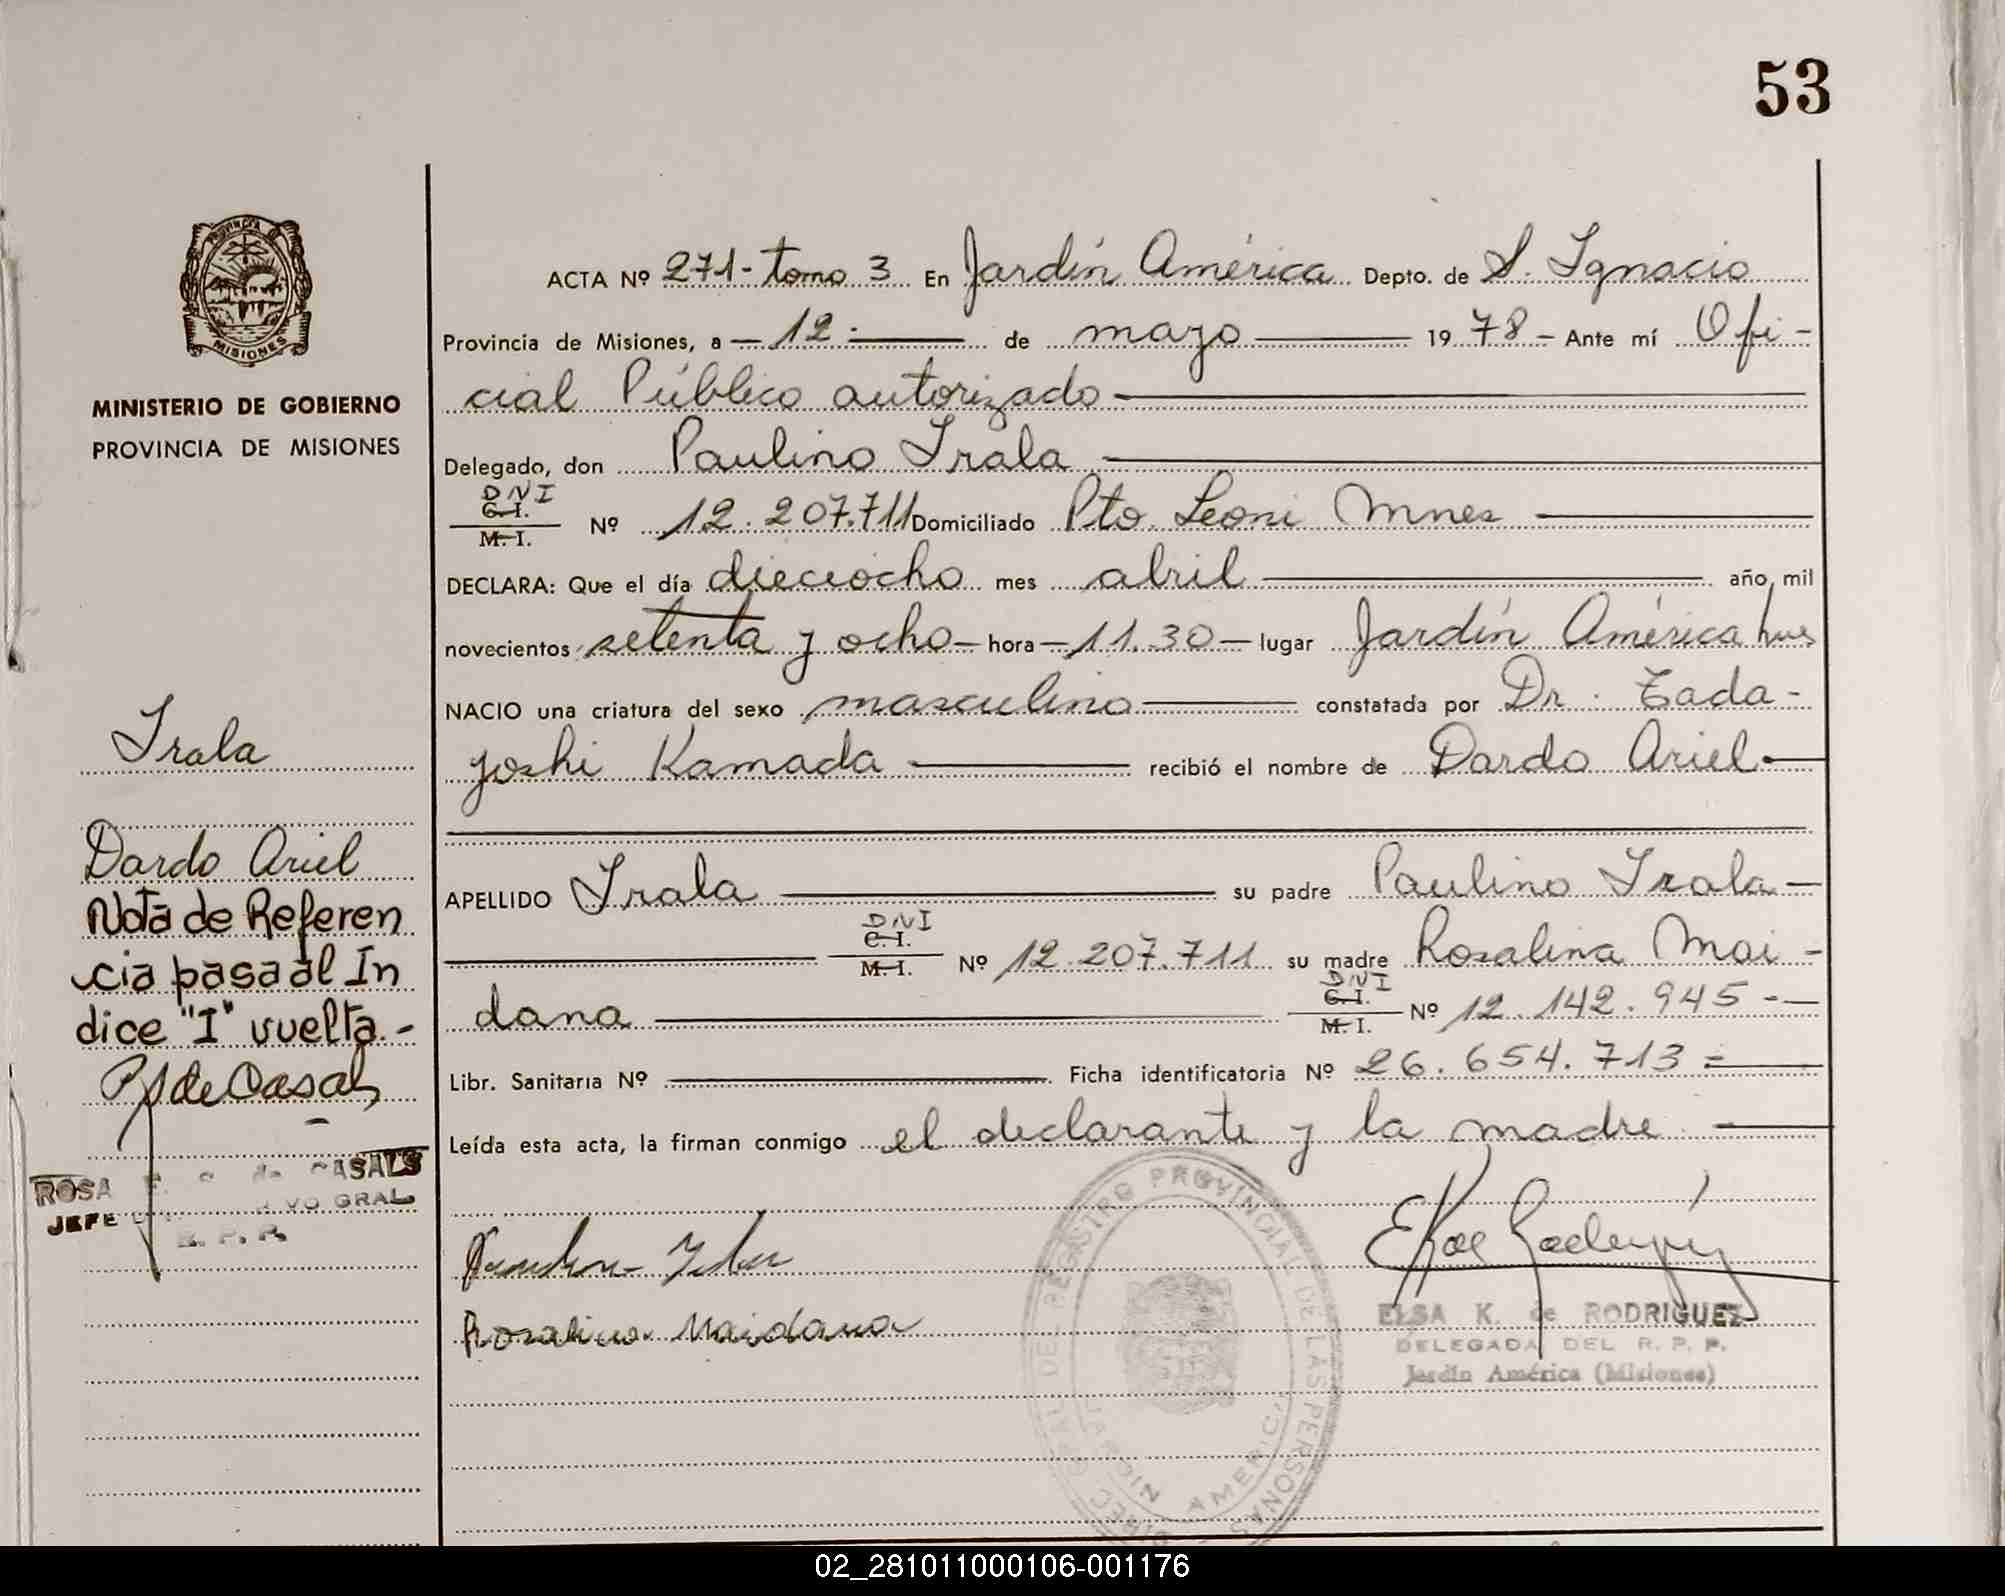 53
PROVINCIA DE
MISIONES
MINISTERIO DE GOBIERNO
PROVINCIA DE MISIONES
ACTA Nº 271- tomo 3 En Jardín América Depto. de S. Ignacio
Provincia de Misiones, a 12 de mayo 1978 - Ante mí Ofi-
cial Público autorizado
Delegado, don Paulino Irala
DNI
C. I.
M. I. Nº 12.207.711 Domiciliado Pto. Leoni Mnes
DECLARA: Que el día dieciocho mes abril año mil
novecientos setenta y ocho - hora - 11.30 - lugar Jardín América
NACIO una criatura del sexo masculino constatada por Dr. Tada-
yoshi Kamada recibió el nombre de Dardo Ariel
APELLIDO Irala su padre Paulino Irala
DNI
C. I.
M. I. Nº 12.207.711 su madre Rosalina Mai-
DNI
C. I.
dana M. I. Nº 12.142.945 -
Libr. Sanitaria Nº Ficha identificatoria Nº 26.654.713 =
Leída esta acta, la firman conmigo el declarante y la madre
Irala
Dardo Ariel
Nota de Referen
cia pasa al In
dice "I" vuelta.-
de Casals
ROSA de CASALS
JEFE GRAL
R. P. P.
Rosalina Maidana
ELSA K. de RODRIGUEZ
DELEGADA DEL R. P. P.
Jardín América (Misiones)
REGISTRO PROVINCIAL DE LAS PERSONAS
JARDIN AMERICA
02_281011000106-001176